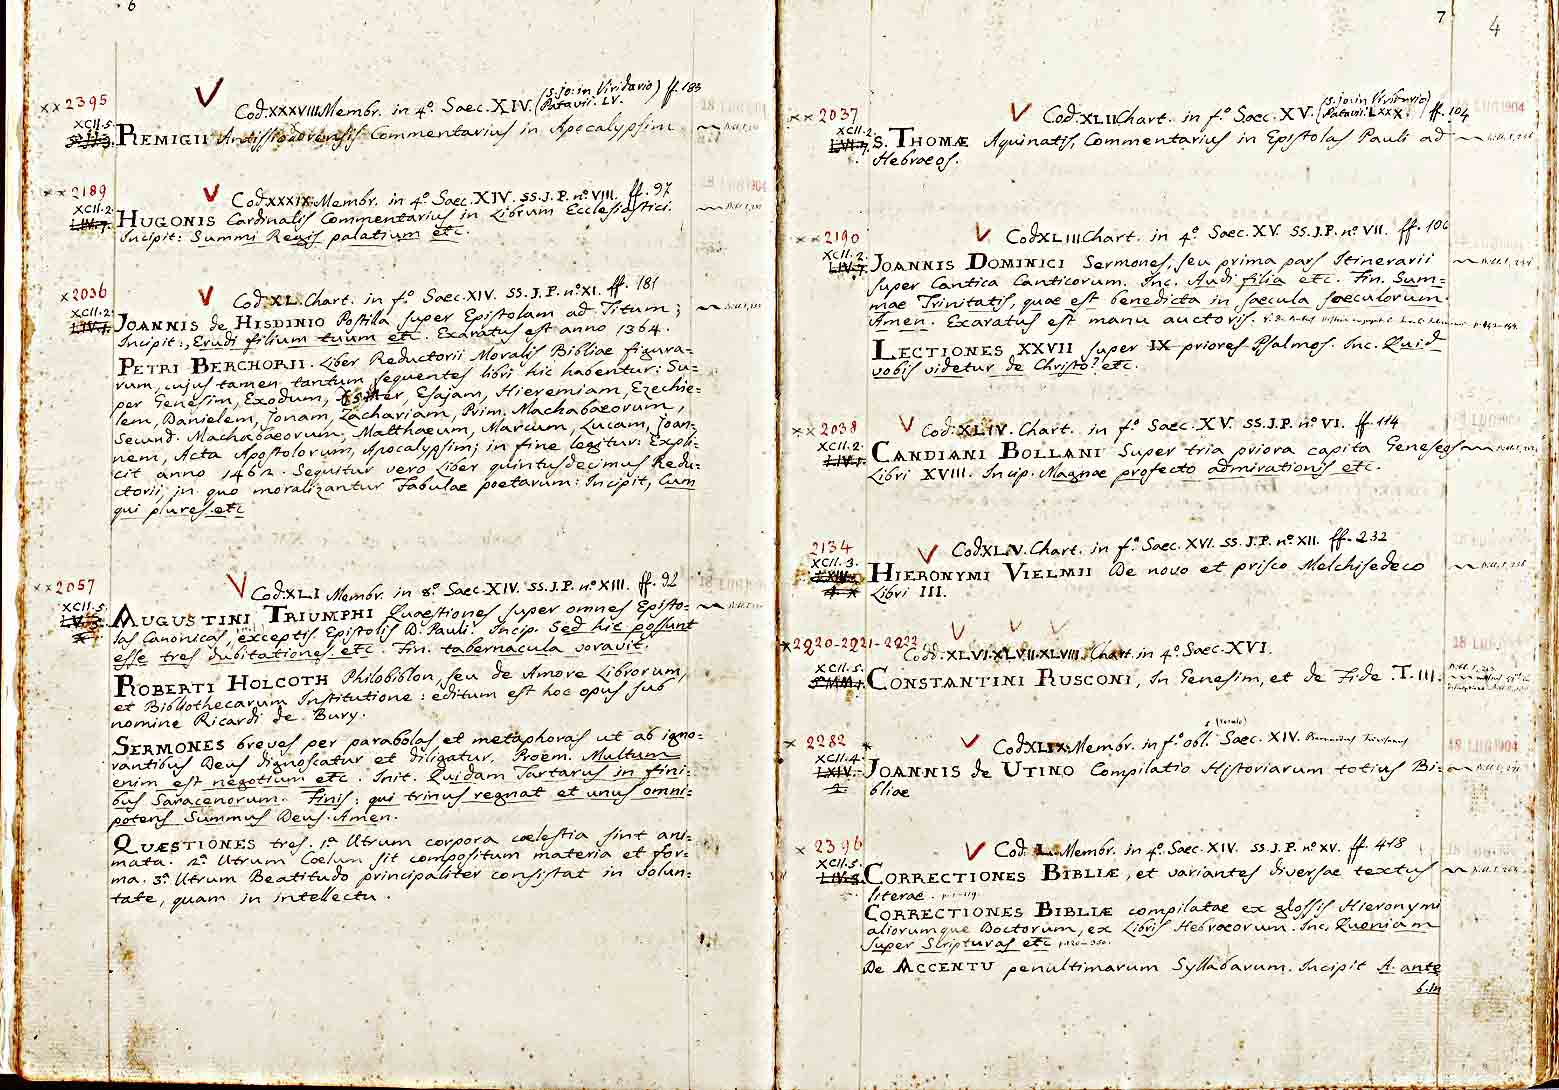 6
xx2395
XCII.5.
V
Cod. XXXVIII Membr. in 4º. Saec. XIV. (S. Jo: in Viridario) ff. 183
Patavii. LV.
REMIGII Antissiodorensis Commentarius in Apocalypsim
xx2189
XCII.2.
LIV.7.
V
Cod. XXXIX. Membr. in 4º. Saec. XIV. SS. J. P. nº. VIII. ff. 97
HUGONIS Cardinalis Commentarius in Librum Ecclesiastici.
Incipit: Summi Regis palatium etc.
x2036
XCII.2.
V
Cod. XL. Chart. in fº. Saec. XIV. SS. J. P. nº. XI. ff. 181
JOANNIS de HISDINIO Postilla super Epistolam ad Titum;
Incipit:, Erudi filium tuum etc. Exaratus est anno 1364.
PETRI BERCHORII. Liber Reductorii Moralis Bibliae figura=
rum, cujus tamen tantum sequentes libri hic habentur: Su=
per Genesim, Exodum, Esther, Esajam, Hieremiam, Ezechie=
lem, Danielem, Jonam, Zachariam, Prim. Machabaeorum,
Secund. Machabaeorum, Matthaeum, Marcum, Lucam, Joan=
nem, Acta Apostolorum, Apocalypsim; in fine legitur: Expli=
cit anno 1462. Sequitur vero Liber quintusdecimus Redu=
ctorii, in quo moralizantur Fabulae poetarum: Incipit, Cum
qui plures etc
xx2057
XCII.5.
V
Cod. XLI Membr. in 8º. Saec. XIV. SS. J. P. nº. XIII. ff. 92
AUGUSTINI TRIUMPHI Quaestiones super omnes Episto=
las Canonicas, exceptis Epistolis D. Pauli. Incip. Sed hic possunt
esse tres dubitationes. etc. Fin. tabernacula voravit.
ROBERTI HOLCOTH Philobiblon, seu de Amore Librorum,
et Bibliothecarum Institutione: editum est hoc opus sub
nomine Ricardi de Bury.
SERMONES breves per parabolas et metaphoras ut ab igno=
rantibus Deus dignoscatur et diligatur. Proem. Multum
enim est negotium etc. Init. Quidam Tartarus in fini=
bus Saracenorum. Finis: qui trinus regnat et unus omni=
potens Summus Deus. Amen.
QUÆSTIONES tres. 1ª. Utrum corpora cœlestia sint ani=
mata. 2ª. Utrum Coelum sit compositum materia et for=
ma. 3ª. Utrum Beatitudo principaliter consistat in volun=
tate, quam in intellectu.
7
4
xx2037
XCII.2.
V
Cod. XLII Chart. in fº. Saec. XV. (S. Jo: in Viridario) ff. 104
Patavii. LXXX.
S. THOMÆ Aquinatis, Commentarius in Epistolas Pauli ad
Hebraeos.
xx2190
XCII.2.
LIV.7.
V
Cod. XLIII Chart. in 4º. Saec. XV. SS. J. P. nº. VII. ff. 106
JOANNIS DOMINICI Sermones, seu prima pars Itinerarii
super Cantica Canticorum. Inc. Audi filia etc. Fin. Sum=
mae Trinitatis, quae est benedicta in saecula saeculorum.
Amen. Exaratus est manu auctoris.
LECTIONES XXVII super IX priores Psalmos. Inc. Quid
vobis videtur de Christo? etc.
xx2038
XCII.2.
LIV.1.
V
Cod. XLIV. Chart. in fº. Saec. XV. SS. J. P. nº. VI. ff. 114
CANDIANI BOLLANI Super tria priora capita Geneseos
Libri XVIII. Incip. Magnae profecto admirationis etc.
2134
XCII.3.
V
Cod. XLV. Chart. in fº. Saec. XVI. SS. J. P. nº. XII. ff. 232
HIERONYMI VIELMII De novo et prisco Melchisedeco
Libri III.
x2920-2921-2922
XCII.5.
V V V
Codd. XLVI. XLVII. XLVIII. Chart. in 4º. Saec. XVI.
CONSTANTINI RUSCONI, In Genesim, et de Fide. T. III.
18 LUG 1904
x 2282
XCII.4.
LXIV.
2
V
Cod. XLIX. Membr. in fº. obl. Saec. XIV.
JOANNIS de UTINO Compilatio Historiarum totius Bi=
bliae
18 LUG 1904
x 2396
XCII.5.
LIV.3.
V
Cod. L. Membr. in 4º. Saec. XIV. SS. J. P. nº. XV. ff. 418
CORRECTIONES BIBLIÆ, et variantes diversae textus
literae.
CORRECTIONES BIBLIÆ compilatae ex glossis Hieronymi
aliorumque Doctorum, ex Libris Hebraeorum. Inc. Quoniam
super Scripturas etc
De ACCENTU penultimarum Syllabarum. Incipit A. ante
b. in